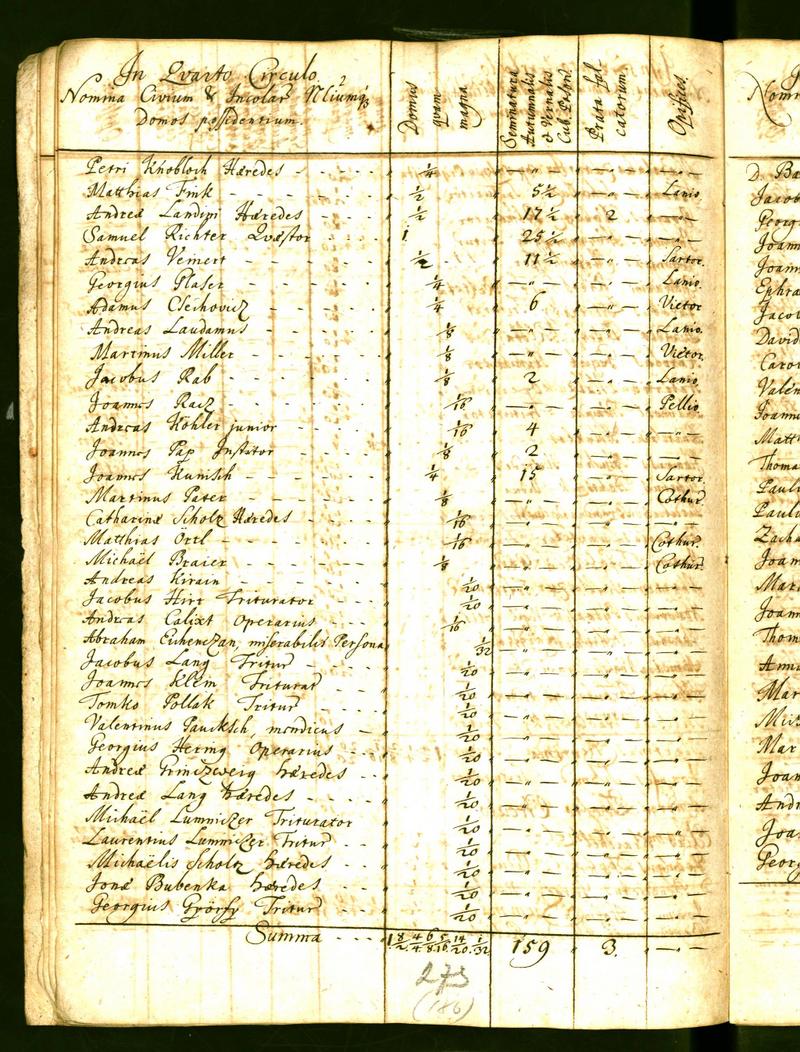 In Quarto Circulo
Nomina Civium & Incolar Nliumq3
Domos possidentium.
Domus quam magna
Seminatura Autumnalis & Vernalis Cub. Poson.
Prata fal catorum.
Opifices.
Petri Knobloch Hæredes - - - - - 1/4 — " — — " — — " —
Matthias Fink - - - - 1/2 5 1/2 — " — Lanio
Andreæ Hæredes - - - 1/2 17 1/2 2 — " —
Samuel Richter Quæstor - - - 1 25 1/2 — " — — " —
Andreas Veinert - - - - 1/2 11 1/2 — " — Sartor.
Georgius Glaser - - - - 1/4 — " — — " — Lanio.
Adamus Csechovicz - - - 1/4 6 — " — Victor
Andreas Laudamus - - - - 1/8 — " — — " — Lanio.
Martinus Miller - - - - 1/8 — " — — " — Victor.
Jacobus Rab - - - - 1/8 2 — " — Lanio.
Joannes Racz - - - - 1/16 — " — — " — Pellio
Andreas Kohler junior - - - 1/16 4 — " — — " —
Joannes Pap Institor - - - 1/8 2 — " — — " —
Joannes Kunisch - - - - 1/4 15 — " — Sartor
Martinus Pater - - - - 1/8 — " — — " — Cothur.
Catharinæ Scholz Hæredes - - - - 1/16 — " — — " — — " —
Matthias Ortl - - - - 1/16 — " — — " — Cothur.
Michaël Braier - - - - 1/8 — " — — " — Cothur.
Andreas Kirain - - - - 1/20 — " — — " — — " —
Jacobus Hirt Triturator - - - - 1/20 — " — — " — — " —
Andreas Calixt Operarius - - - 1/16 — " — — " — — " —
Abraham miserabilis Persona 1/32 — " — — " — — " —
Jacobus Lang Tritur - - - - 1/20 — " — — " — — " —
Joannes Klem Triturar - - - - 1/20 — " — — " — — " —
Tomko Pollak Tritur - - - - 1/20 — " — — " — — " —
Valentinus Paucksch, mendicus - 1/20 — " — — " — — " —
Georgius Hering Operarius - - - 1/20 — " — — " — — " —
Andreæ Grinczweig Hæredes - - - 1/20 — " — — " — — " —
Andreæ Lang Hæredes - - - - 1/20 — " — — " — — " —
Michaël Lumniczer Triturator 1/20 — " — — " — — " —
Laurentius Lumniczer Tritur - - 1/20 — " — — " — — " —
Michaëlis Scholtz Hæredes - - 1/20 — " — — " — — " —
Jonæ Bubenka Hæredes - - - 1/20 — " — — " — — " —
Georgius Györfy Tritur - - - 1/20 — " — — " — — " —
Summa - - - - 1 8/2 4/4 6/8 5/16 14/20 1/32 159 3. — " —
273
(186)